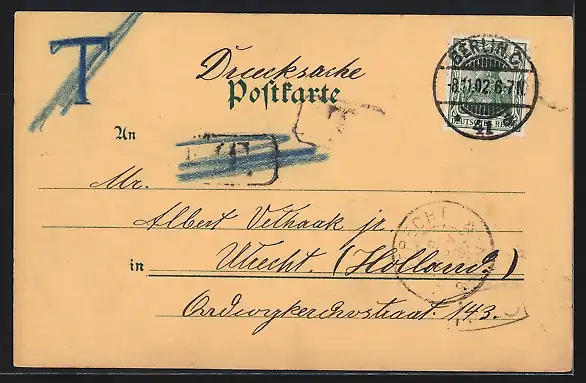 T
Drucksache
Postkarte
BERLIN.C
8.11.02.6-7N.
DEUTSCHES REICH
T
An
T.
Mr.
Albert Velhaak jr.
in Utrecht. (Holland.)
143.